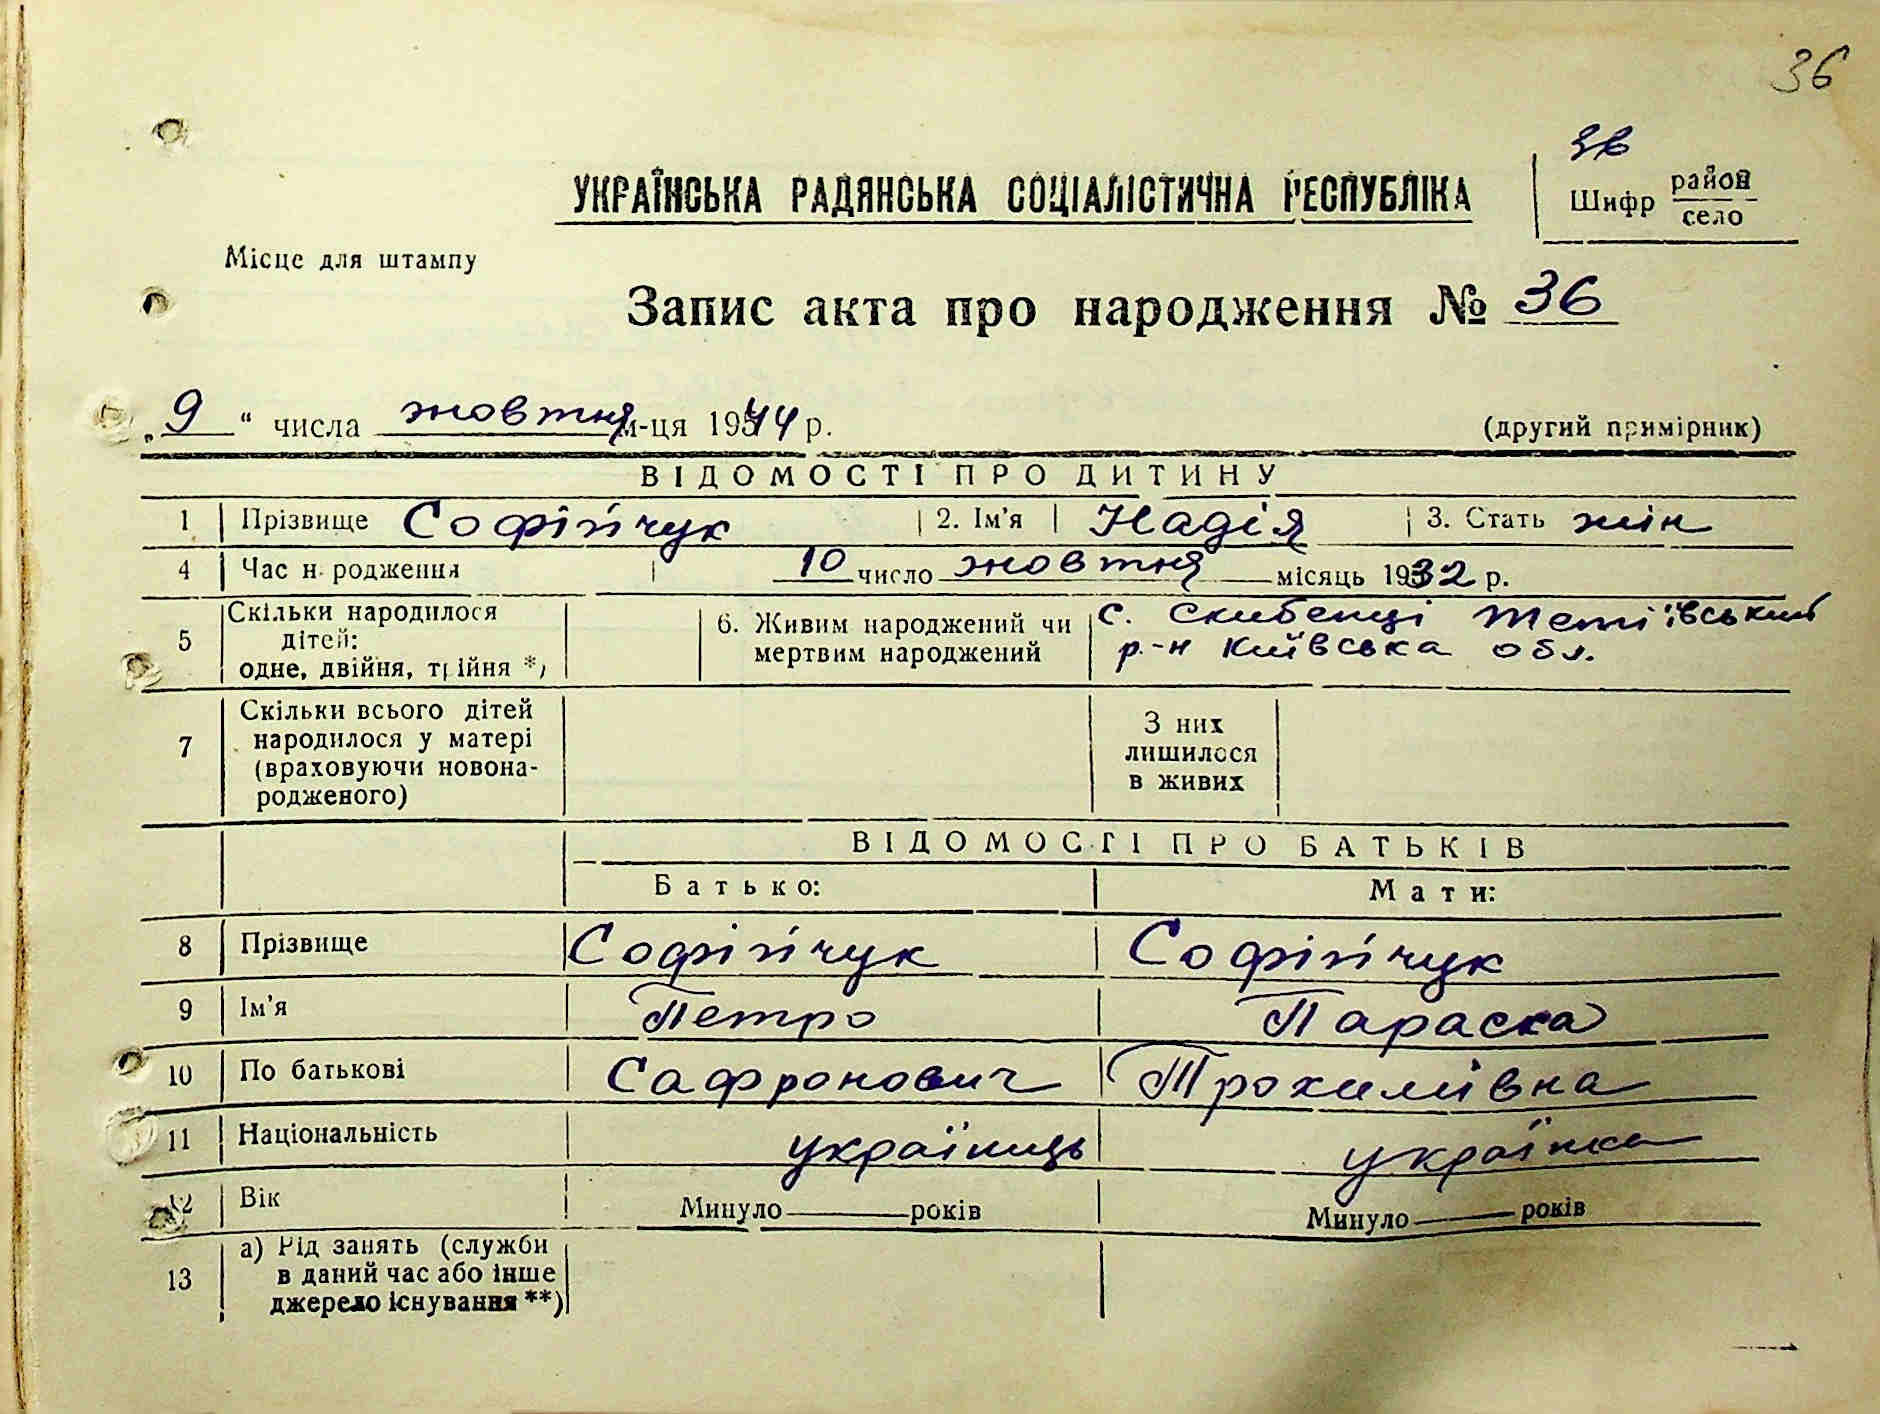 36
36
УКРАЇНСЬКА РАДЯНСЬКА СОЦІАЛІСТИЧНА РЕСПУБЛІКА
Шифр район
село
Місце для штампу
Запис акта про народження № 36
„9“ числа жовтня м-ця 1944 р.
(другий примірник)
ВІДОМОСТІ ПРО ДИТИНУ
1 Прізвище Софійчук 2. Ім'я Надія 3. Стать жін
4 Час народження 10 число жовтня місяць 1932 р.
5 Скільки народилося
дітей:
одне, двійня, трійня *)
6. Живим народжений чи
мертвим народжений
с. Скибенці Тетіївський
р-н Київська обл.
7 Скільки всього дітей
народилося у матері
(враховуючи новона-
родженого)
З них
лишилося
в живих
ВІДОМОСТІ ПРО БАТЬКІВ
Батько: Мати:
8 Прізвище Софійчук Софійчук
9 Ім'я Петро Параска
10 По батькові Сафронович Трохимівна
11 Національність українець українка
12 Вік Минуло років Минуло років
13 а) Рід занять (служби
в даний час або інше
джерело існування **)